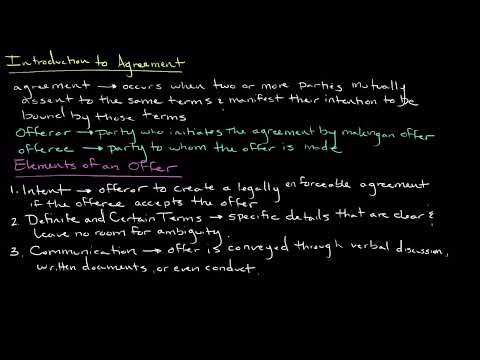 Introduction to Agreement
agreement → occurs when two or more parties mutually
assent to the same terms & manifest their intention to be
bound by those terms
Offeror → party who initiates the agreement by making an offer
offeree → party to whom the offer is made
Elements of an Offer
1. Intent → offeror to create a legally enforceable agreement
if the offeree accepts the offer
2. Definite and Certain Terms → specific details that are clear &
leave no room for ambiguity.
3. Communication → offer is conveyed through verbal discussion,
written documents, or even conduct.